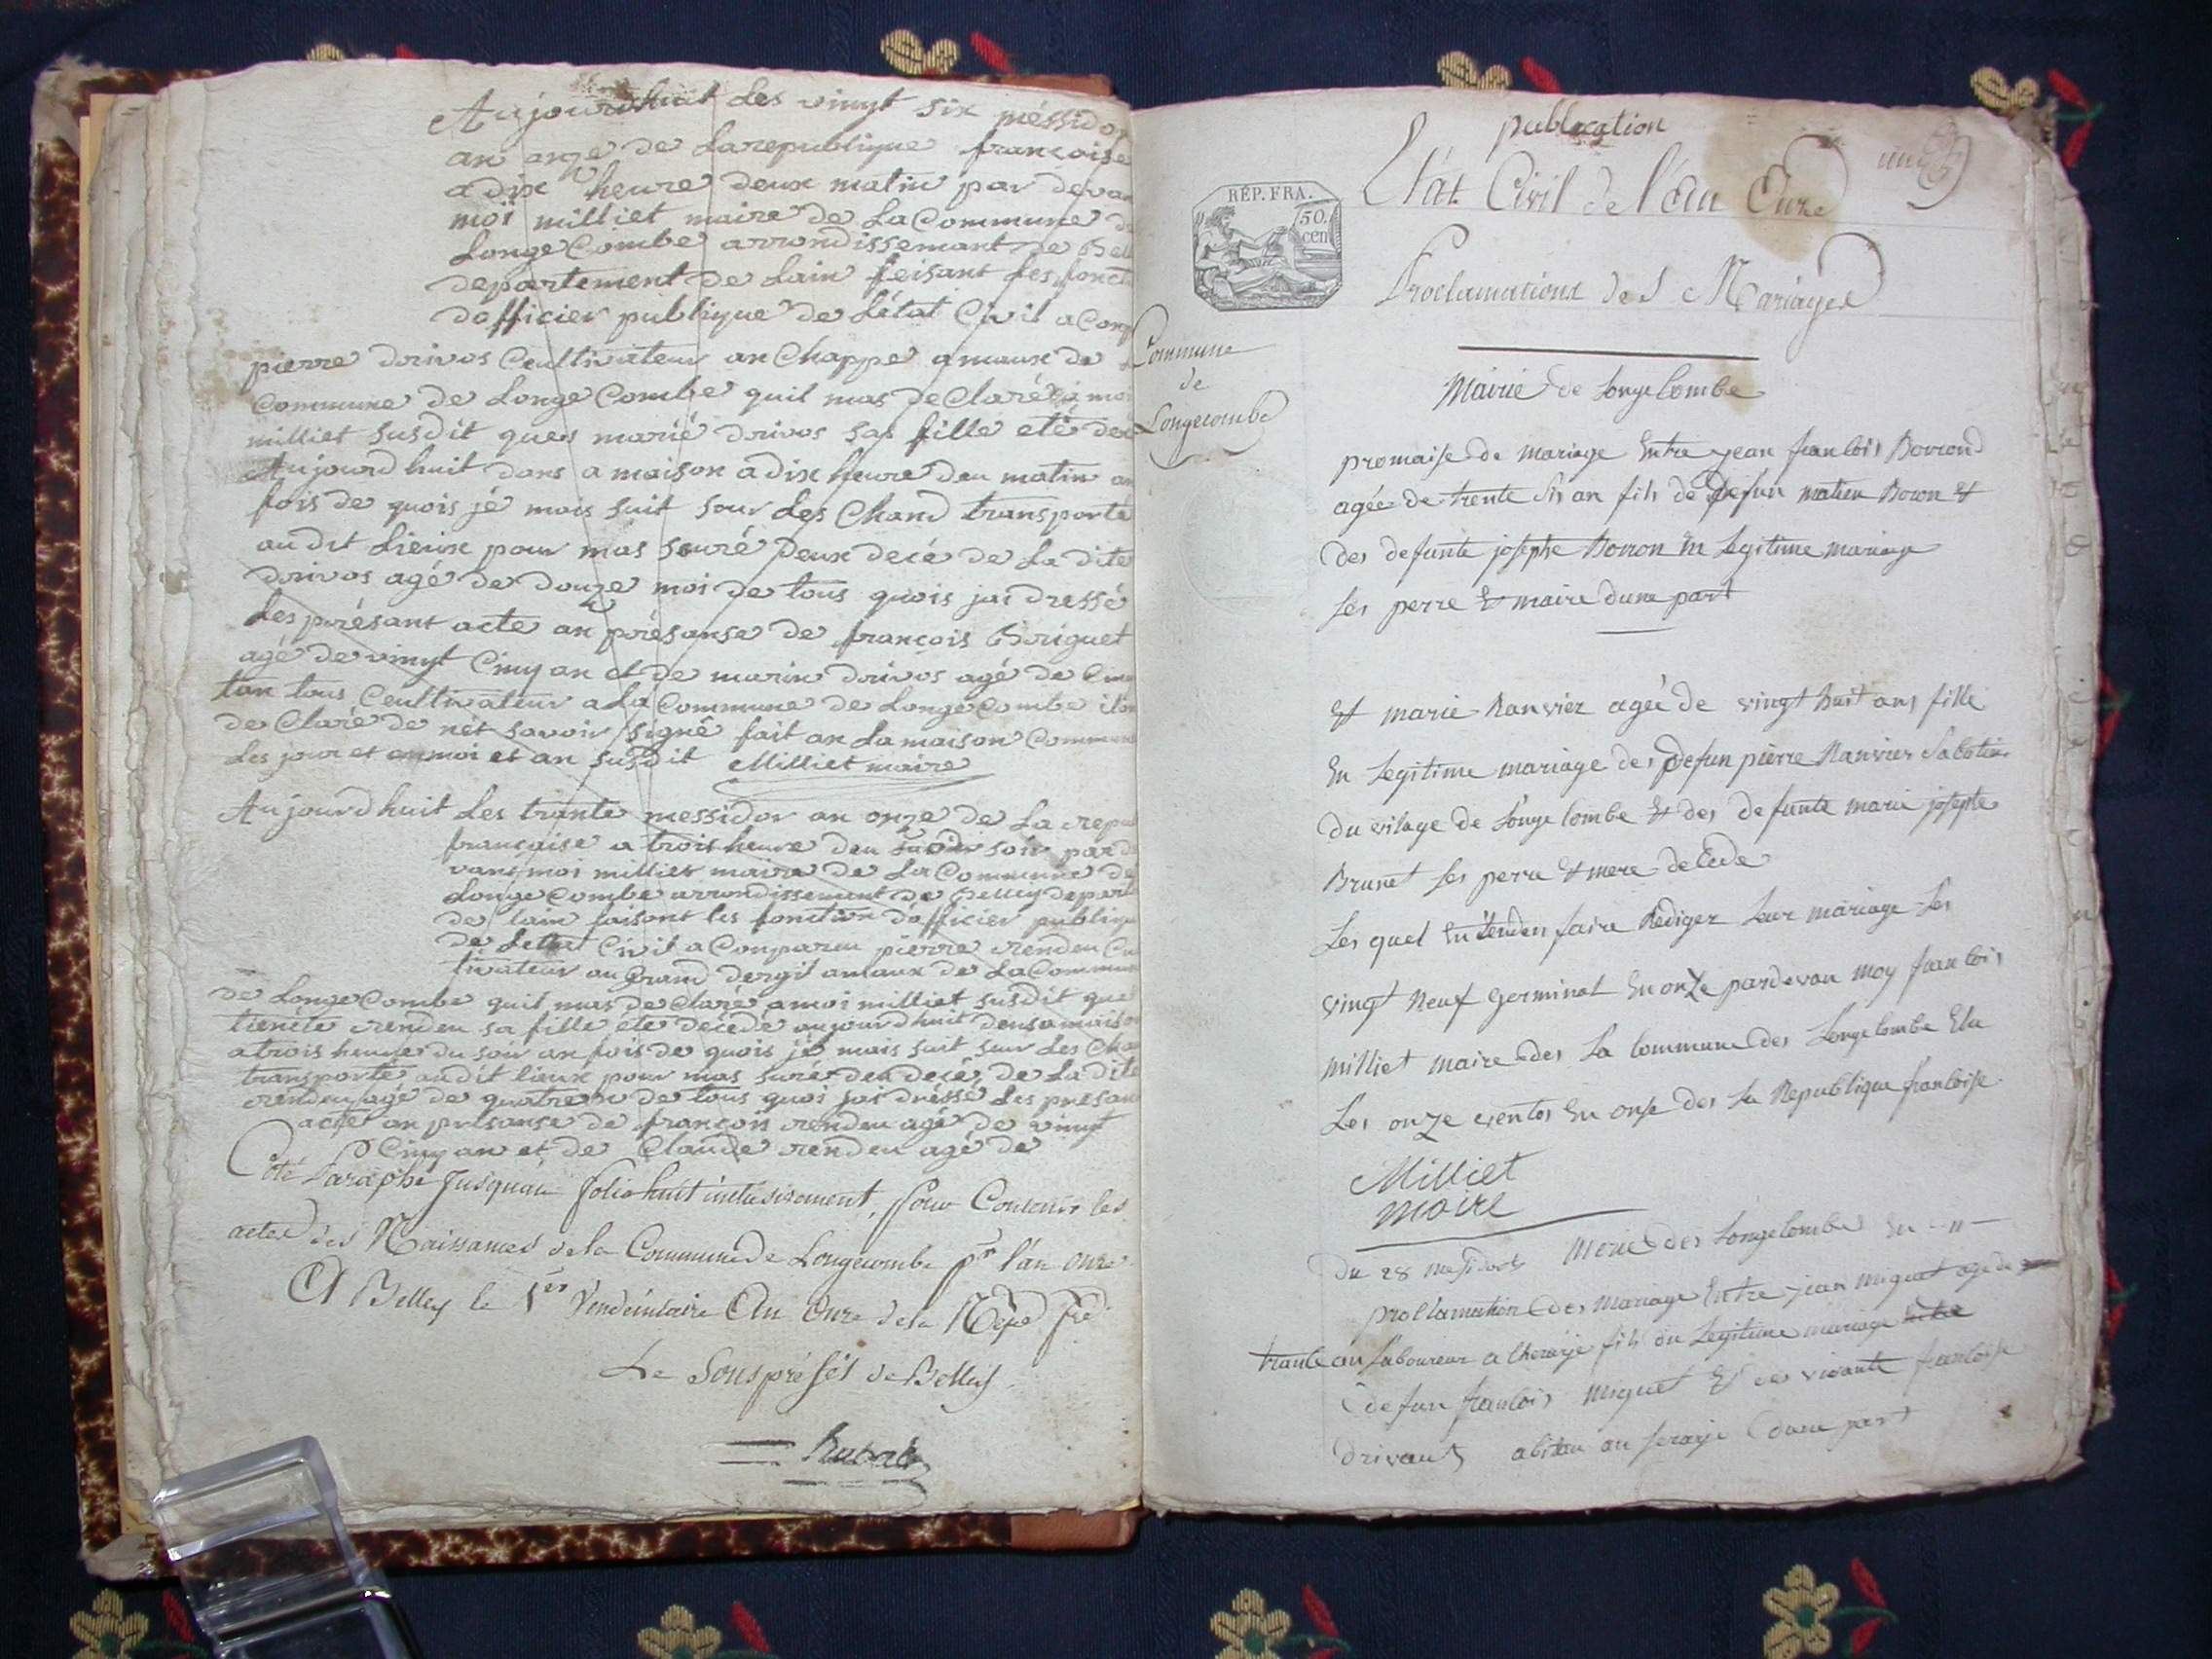 Aujourdhuit les vingt six méssidor
an onze de La republique francoise
a dix heure deux matin par devan
moi milliet maire de La Commune de
Longe Combe arrondissemant de Bell
departement de Lain feisant les fonct
dofficier publique de Létat Civil a Comp
pierre drivos Ceultivateur an Chappe amaux de
Commune de Longe Combe quil mas de Claré a moi
milliet susdit ques marié drivos sas fille eté dec
Aujourdhuit dans a maison a dix heure deu matin an
fois de quois jé mais suit sour Les Chand transporté
au dit Lieux pour mas seuré deux decé de La dite
drivos agé de douze moi de tous quois jai dressé
Les présant acte an présanse de françois Briguet
agé de vingt Cinq an et de marin drivos agé de
tan tous Ceultivateur a La Commune de Longe Combe
de Claré de nét savoir signé fait an La maison Commune
Les jour et anmoi et an susdit Milliet maire
Aujourdhuit Les trante messidor an onze de La repu
française a trois heure deu soir par de
vans moi milliet maire de La Commune de
Longe Combe arrondissement de Belley depart
de lain faisant les fonction dofficier publique
de Civil a Conpareu pierre rendeu Cu
tivateur au Grand dergit amaux de La Commune
de Longe Combe quil mas de Claré a moi milliet susdit que
rendeu sa fille ete decedé aujourdhuit dens a maison
a trois heure du soir an fois de quois jé mais suit sur Les Cha
transporté au dit lieux pour mas suré deu decé de La dite
rendeu agé de quatre de tous quoi jai dréssé Les presan
actet an présanse de françois rendeu agé de vingt
Cinq an et de Claude rendeu agé de
Coté Paraphé Jusqu'au folio huit inclusivement, pour Contenir les
actes des Naissances de la Commune de Longecombe pr l'an onze
A Belley le 1er Vendemiaire An Onze de la Rép fse
Le Sous préfet de Belley
publication
Etat Civil de l'an Onze
RÉP. FRA.
50.
cen
Proclamations des Mariages
Commune
de
Longecombe
Mairie de Longe Combe
promaise de mariage Entre jean francois Borrond
agée de trente sis an fils de Defun matieu Boron et
des defunte josephe Borron En Legitime mariage
Les perre et maire dune part
Et marie Ranvier agée de vingt huit ans fille
En Legitime mariage des defun pierre Ranvier
du vilage de Longe Combe et des defunte marie josephe
Brunet Les perre et mere
Les quel Entenden faire Rediger Leur mariage Les
vingt neuf Germinal En onze pardevan moy francois
Milliet maire des La Commune des Longe Combe Elu
Les onze ventos En onse des La Republique francoise
Milliet
maire
Du 28 mesidort Merie des Longe Combe En - 11 -
proclamation des mariage Entre jean miguet age de
trante an Laboureur a fils du Legitime mariage
defun francois Miguet Et des vivante francoise
drivaut abitan au dune part